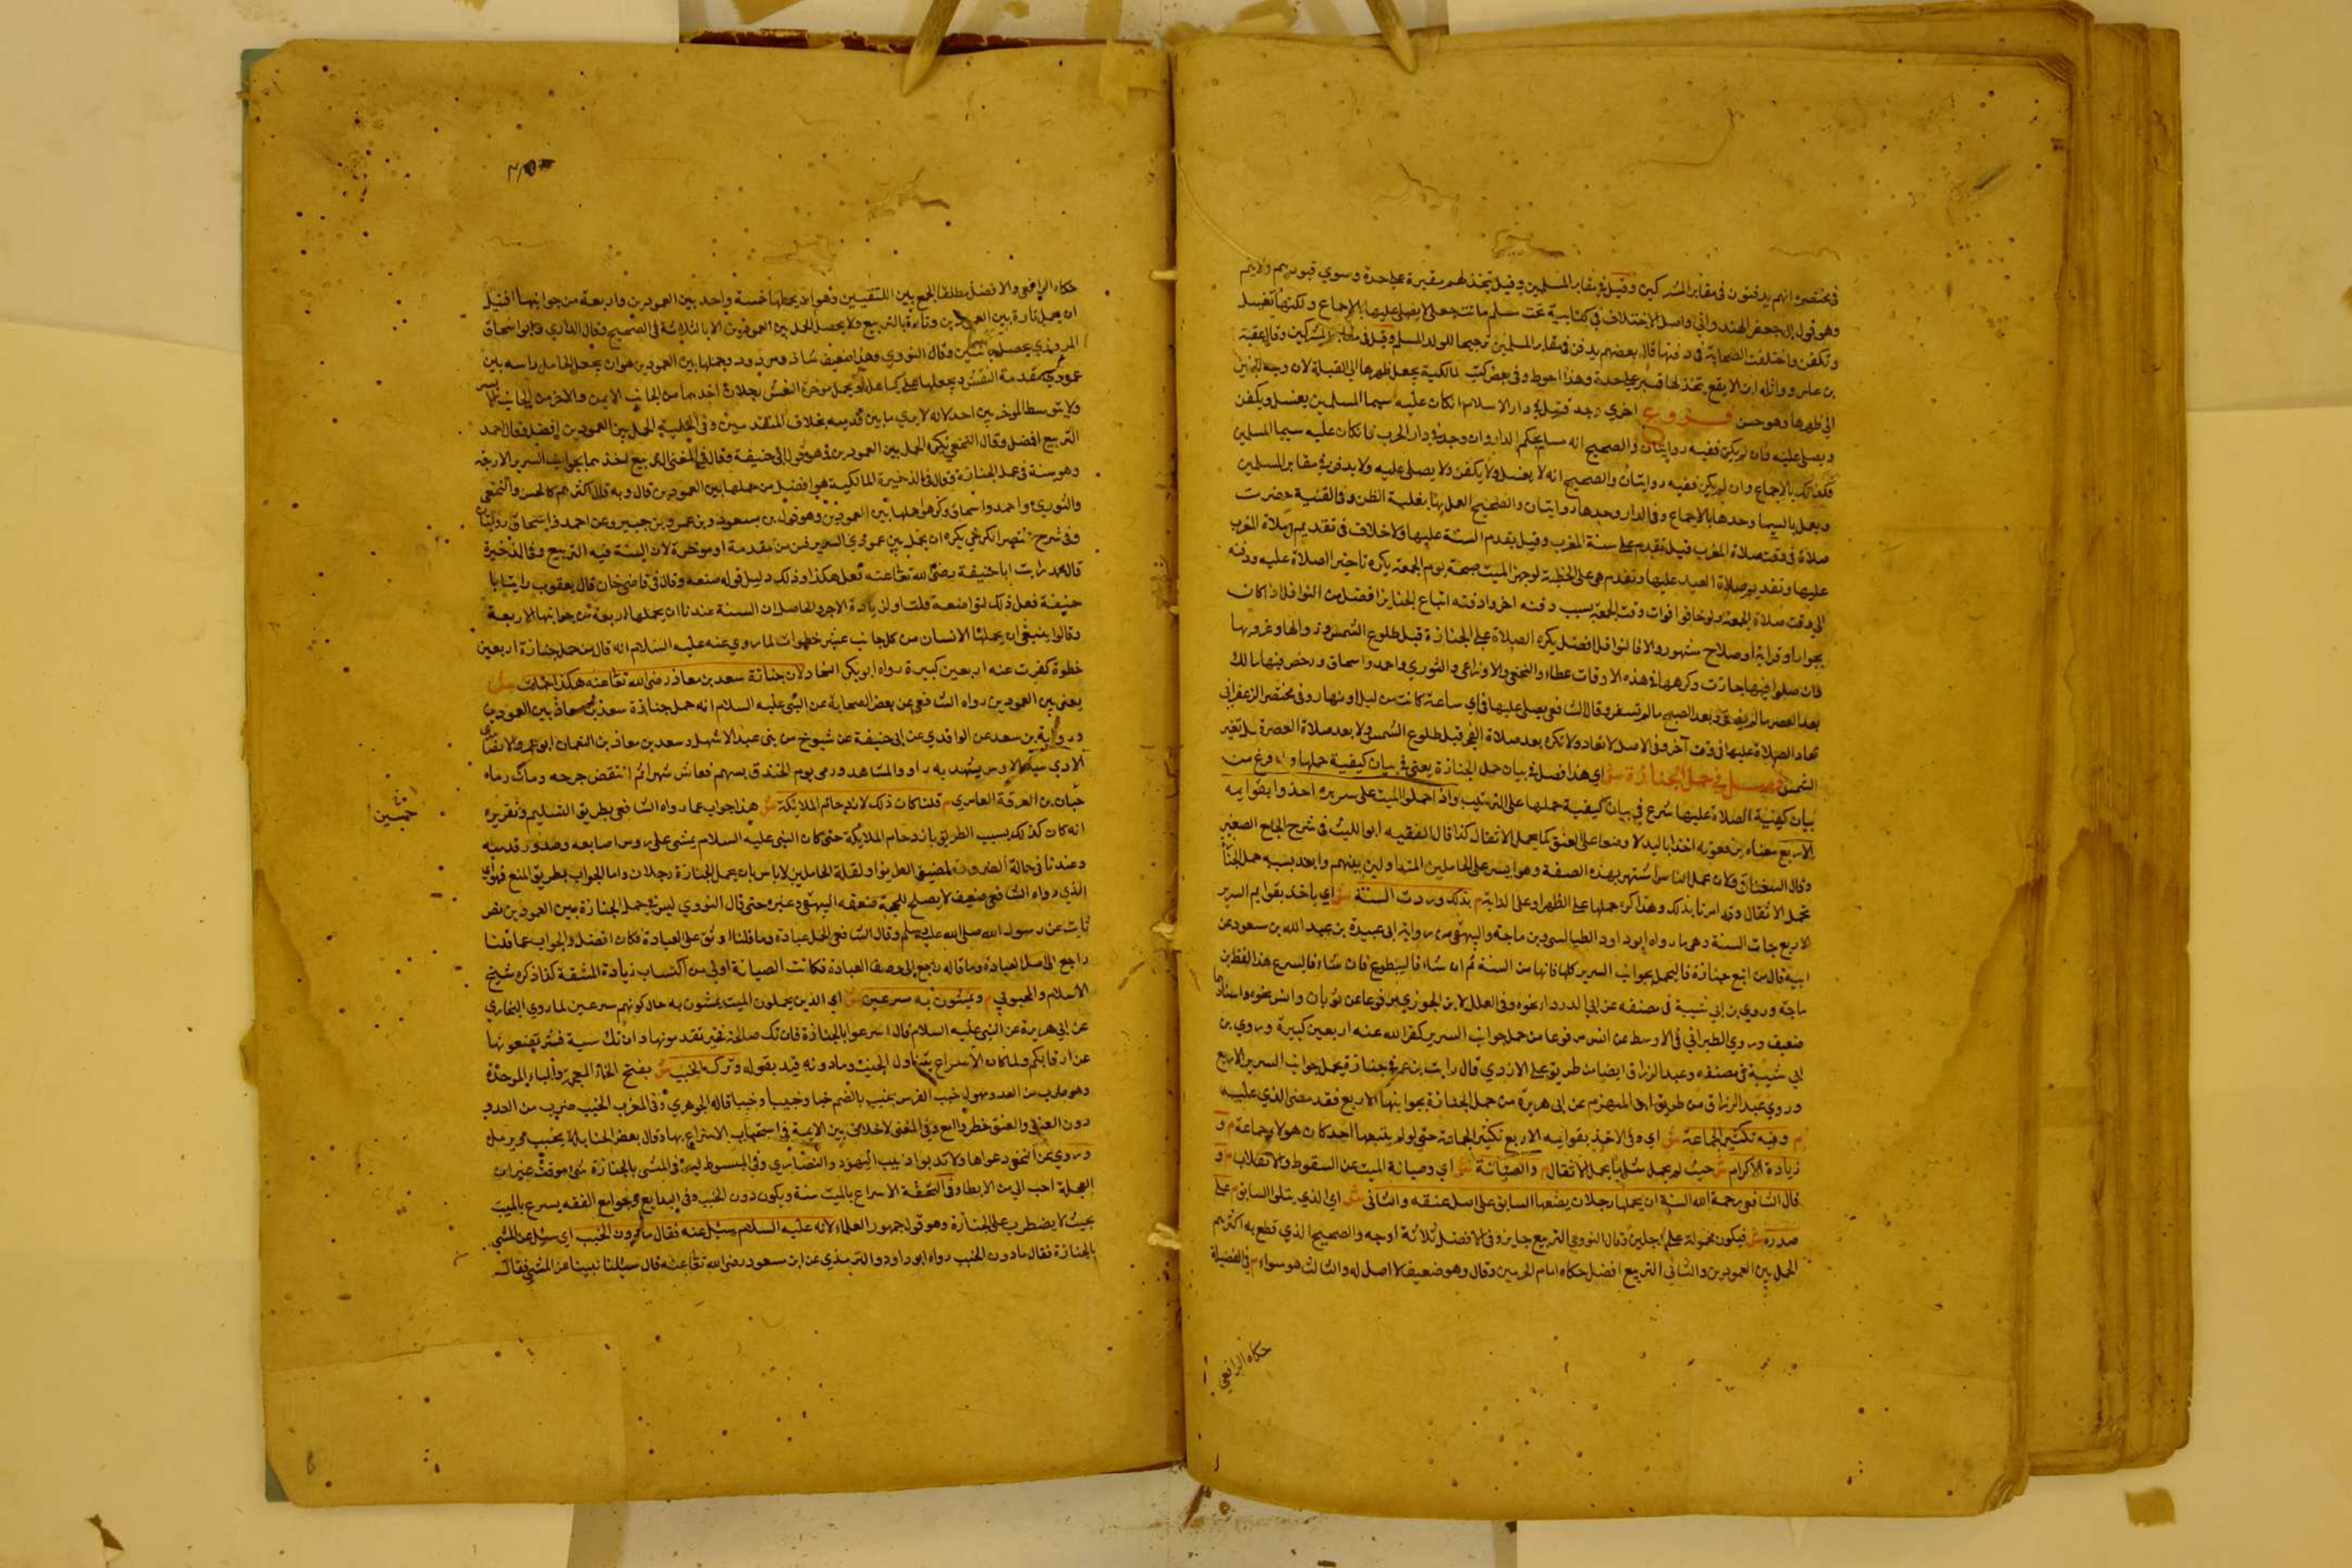 في مختصره انهم يدفنون في مقابر المشركين وقيل في مقابر المسلمين وقيل يتخذ لهم مقبرة على حدة وسوي قبورهم ولا يسنم
وهو قول ابي جعفر الهندواني واصل الاختلاف في كتابية تحت مسلم ماتت حبلى لا يصلى عليها بالاجماع ولكنها تغسل
وتكفن واختلفت الصحابة في دفنها قال بعضهم يدفن في مقابر المسلمين ترجيحا للولد المسلم وقيل في مقابر المشركين وقال عقبة
بن عامر وواثلة بن الاسقع يتخذ لها قبر على حدة وهذا احوط وفي بعض كتب المالكية يجعل ظهرها الى القبلة لان وجه الجنين
الى ظهرها وهو حسن فروع اخرى وجد قتيل في دار الاسلام ان كان عليه سيما المسلمين يغسل ويكفن
ويصلى عليه فان لم يكن ففيه روايتان والصحيح انه مسلم بحكم الدار وان وجد في دار الحرب فان كان عليه سيما المسلمين
فكذلك بالاجماع وان لم يكن ففيه روايتان والصحيح انه لا يغسل ولا يكفن ولا يصلى عليه ولا يدفن في مقابر المسلمين
ويعمل بالسيما وحدها بالاجماع وفي الدار وحدها روايتان والصحيح العمل بها بغلبة الظن وفي القنية حضرت
صلاة في وقت صلاة المغرب قيل تقدم على سنة المغرب وقيل يقدم السنة عليها ولا خلاف في تقديم صلاة المغرب
عليها وتقديم صلاة العيد عليها وتقدم هي على الخطبة لو جهز الميت صبيحة يوم الجمعة يكره تاخير الصلاة عليه ودفنه
الى وقت صلاة الجمعة ولو خافوا فوات وقت الجمعة بسبب دفنه اخروا دفنه اتباع الجنايز افضل من النوافل اذا كان
بجوار او قرابة او صلاح مشهور والا فالنوافل افضل يكره الصلاة على الجنازة قبل طلوع الشمس وزوالها وغروبها
فان صلوا فيها جازت وكرهها في هذه الاوقات عطاء والنخعي والاوزاعي والثوري واحمد واسحاق ورخص فيها مالك
بعد العصر ما لم يصفر وبعد الصبح ما لم تسفر وقال الشافعي يصلى عليها في اي ساعة كانت من ليل او نهار وفي مختصر الزعفراني
تعاد الصلاة عليها في وقت آخر وفي الاصل لا تعاد ولا تكره بعد صلاة الفجر قبل طلوع الشمس ولا بعد صلاة العصر قبل تغير
الشمس فصل في حمل الجنازة ش اي هذا فصل في بيان حمل الجنازة يعني في بيان كيفية حملها ولما فرغ من
بيان كيفية الصلاة عليها شرع في بيان كيفية حملها على الترتيب واذا حملوا الميت على سريره اخذوا بقوايمه
الاربع معناه يرفعونه اخذا باليد لا وضعا على العنق كما يحمل الاثقال كذا قال الفقيه ابو الليث في شرح الجامع الصغير
وقال السغناقي ولان عمل الناس اشتهر بهذه الصفة وهو ايسر على الحاملين المتداولين بينهم وابعد بسببه حمل الجنازة
بحمل الاثقال وقد امرنا بذلك وهذا كره حملها على الظهر او على الدابة م بذلك وردت السنة ش اي ياخذ بقوايم السرير
الاربع جات السنة وهي ما رواه ابو داود الطيالسي وبن ماجة والبيهقي من رواية ابي عبيدة بن عبد الله بن مسعود عن
ابيه قال من اتبع جنازة فاليحمل بجوانب السرير كلها فانها من السنة ثم ان شاء فاليتطوع فان شاء فاليدع هذا لفظ بن
ماجة وروي بن ابي شيبة في مصنفه عن ابي الدرداء نحوه وفي العلل لابن الجوزي مرفوعا عن ثوبان وانس نحوه واسنادهما
ضعيف وروي الطبراني في الاوسط عن انس مرفوعا من حمل جوانب السرير كفر الله عنه اربعين كبيرة وروي بن
ابي شيبة في مصنفه وعبد الرزاق ايضا من طريق علي الازدي قال رايت بن عمر في جنازة فحمل جوانب السرير الاربع
وروي عبد الرزاق من طريق ابي المهزم عن ابي هريرة من حمل الجنازة بجوانبها الاربع فقد قضى الذي عليه
م وفيه تكثير الجماعة ش اي وفي الاخذ بقوايمه الاربع تكثير الجماعة حتى لو لم يتبعها احد كان هولاء جماعة م و
زيادة الاكرام ش حيث لم يحمل مثل ما يحمل الاثقال م والصيانة ش اي وصيانة الميت عن السقوط والانقلاب م و
قال الشافعي رحمة الله السنة ان يحملها رجلان يضعها السابق على اصل عنقه والثاني ش اي الذي يتلو السابق م على
صدره ش فيكون محمولة على رجلين وقال النووي التربيع جايز وفي الافضل ثلاثة اوجه والصحيح الذي قطع به اكثرهم
الحمل بين العمودين والثاني التربيع افضل حكاه امام الحرمين وقال وهو ضعيف لا اصل له والثالث هو سواء في الفضيلة
حكاه الرافعي
حكاه الرافعي والافضل مطلقا الجمع بين الكيفيتين وهو ان يحملها خمسة واحد بين العمودين واربعة من جوانبها افضل
ان يحمل تارة بين العمودين وتارة بالتربيع ولا يحصل الحمل بين العمودين الا بالثلاثة في الصحيح وقال الدارمي وابو اسحاق
المروزي يحصل باثنين وقال النووي وهذا ضعيف شاذ مردود وحملها بين العمودين هو ان يجعل الحامل راسه بين
عمودي مقدمة النعش ويجعلها على كاهله ويحمل موخرة النعش رجلان احدهما من الجانب الايمن والآخر من الجانب الايسر
ولا يتوسط الموخرتين احد لانه لا يرى ما بين قدميه بخلاف المتقدمين وفي الحلية الحمل بين العمودين افضل فقال احمد
التربيع افضل وقال النخعي يكره الحمل بين العمودين وهو قول ابي حنيفة وقال في المغني التربيع اخذ بما بجوانب السرير الاربعة
وهو سنة في حمل الجنازة وقال في الذخيرة المالكية هو افضل من حملها بين العمودين قال وبه قال اكثرهم كالحسن والنخعي
والثوري واحمد واسحاق وكرهوا حملها بين العمودين وهو قول بن مسعود وبن عمر وبن جبير وعن احمد واسحاق روايتان
وفي شرح مختصر الكرخي يكره ان يحمل بين عمودي السرير من مقدمه او موخره لان السنة فيه التربيع وفي الذخيرة
قال محمد رايت ابا حنيفة رضي الله تعا عنه فعل هكذا وذلك دليل قوله صنعه وقال في قاضي خان قال يعقوب رايت ابا
حنيفة فعل ذلك لتواضعه قلت او لزيادة الاجر والحاصل ان السنة عندنا ان يحملها اربعة من جوانبها الاربعة
وقالوا ينبغي ان يحملها الانسان من كل جانب عشر خطوات لما روي عنه عليه السلام انه قال من حمل جنازة اربعين
خطوة كفرت عنه اربعين كبيرة رواه ابو بكر النجاد لان جنازة سعد بن معاذ رضي الله تعا عنه هكذا حملت ش
يعني بين العمودين رواه الشافعي عن بعض الصحابة عن النبي عليه السلام انه حمل جنازة سعد بن معاذ بين العمودين
ورواية بن سعد عن الواقدي عن ابي حنيفة عن شيوخ من بني عبد الاشهل وسعد بن معاذ بن النعمان ابو عمرو الانصاري
الاوسي سيد الاوس شهد بدرا والمشاهد ورمي يوم الخندق بسهم فعاش شهرا ثم انتقض جرحه ومات رماه
حبان بن العرقة العامري م قلنا كان ذلك لازدحام الملائكة ش هذا جواب عما رواه الشافعي بطريق التسليم وتقريره
خمسين
انه كان كذلك بسبب الطريق بازدحام الملايكة حتى كان النبي عليه السلام يمشي على روس اصابعه وصدور قدميه
وعندنا في حالة الضرورة لضيق الطريق او لقلة الحاملين لا باس بان يحمل الجنازة رجلان واما الجواب بطريق المنع فهو ان
الذي رواه الشافعي ضعيف لا يصلح للحجة ضعفه البيهقي وغيره حتى قال النووي ليس في حمل الجنازة بين العمودين نص
ثابت عن رسول الله صلى الله عليه وسلم وقال الشافعي الحمل عبادة وما قلنا اوثق على العبادة فكان افضل والجواب عما قلنا
راجع الى اصل العبادة وما قاله راجع الى وصف العبادة فكانت الصيانة اولى من اكتساب زيادة المشقة كذا ذكره شيخ
الاسلام والمحبوبي م ويمشون به مسرعين ش اي الذين يحملون الميت يمشون به حال كونهم مسرعين لما روي البخاري
عن ابي هريرة عن النبي عليه السلام قال اسرعوا بالجنازة فان تك صالحة فخير تقدمونها وان تك سيية فشر تضعونها
عن رقابكم ولما كان الاسراع يتناول الخبب وما دونه قيد بقوله وترك الخبب ش بفتح الخاء المعجمة والباء الموحدة
وهو ضرب من العدو يقول خب الفرس يخب بالضم خبا وخبيبا وخببا قاله الجوهري وفي المغرب الخبب ضرب من العدو
دون العنق والعنق خطو واسع وفي المغني لا خلاف بين الايمة في استحباب الاسراع بها وقال بعض الحنابلة يخبب ويرمل
وروي عن النخعي دعوها ولا تدبوا دبيب اليهود والنصارى وفي المبسوط ليس في المشي بالجنازة شي موقت غير ان
العجلة احب الي من الابطا وفي التحفة الاسراع بالميت سنة ويكون دون الخبب وفي البدايع وجوامع الفقه يسرع بالميت
بحيث لا يضطرب على الجنازة وهو قول جمهور العلماء لانه عليه السلام سئل عنه فقال ما دون الخبب اي سئل عن المشي
بالجنازة فقال ما دون الخبب رواه ابو داود والترمذي عن ابن مسعود رضي الله تعا عنه قال سالنا نبينا عن المشي فقال